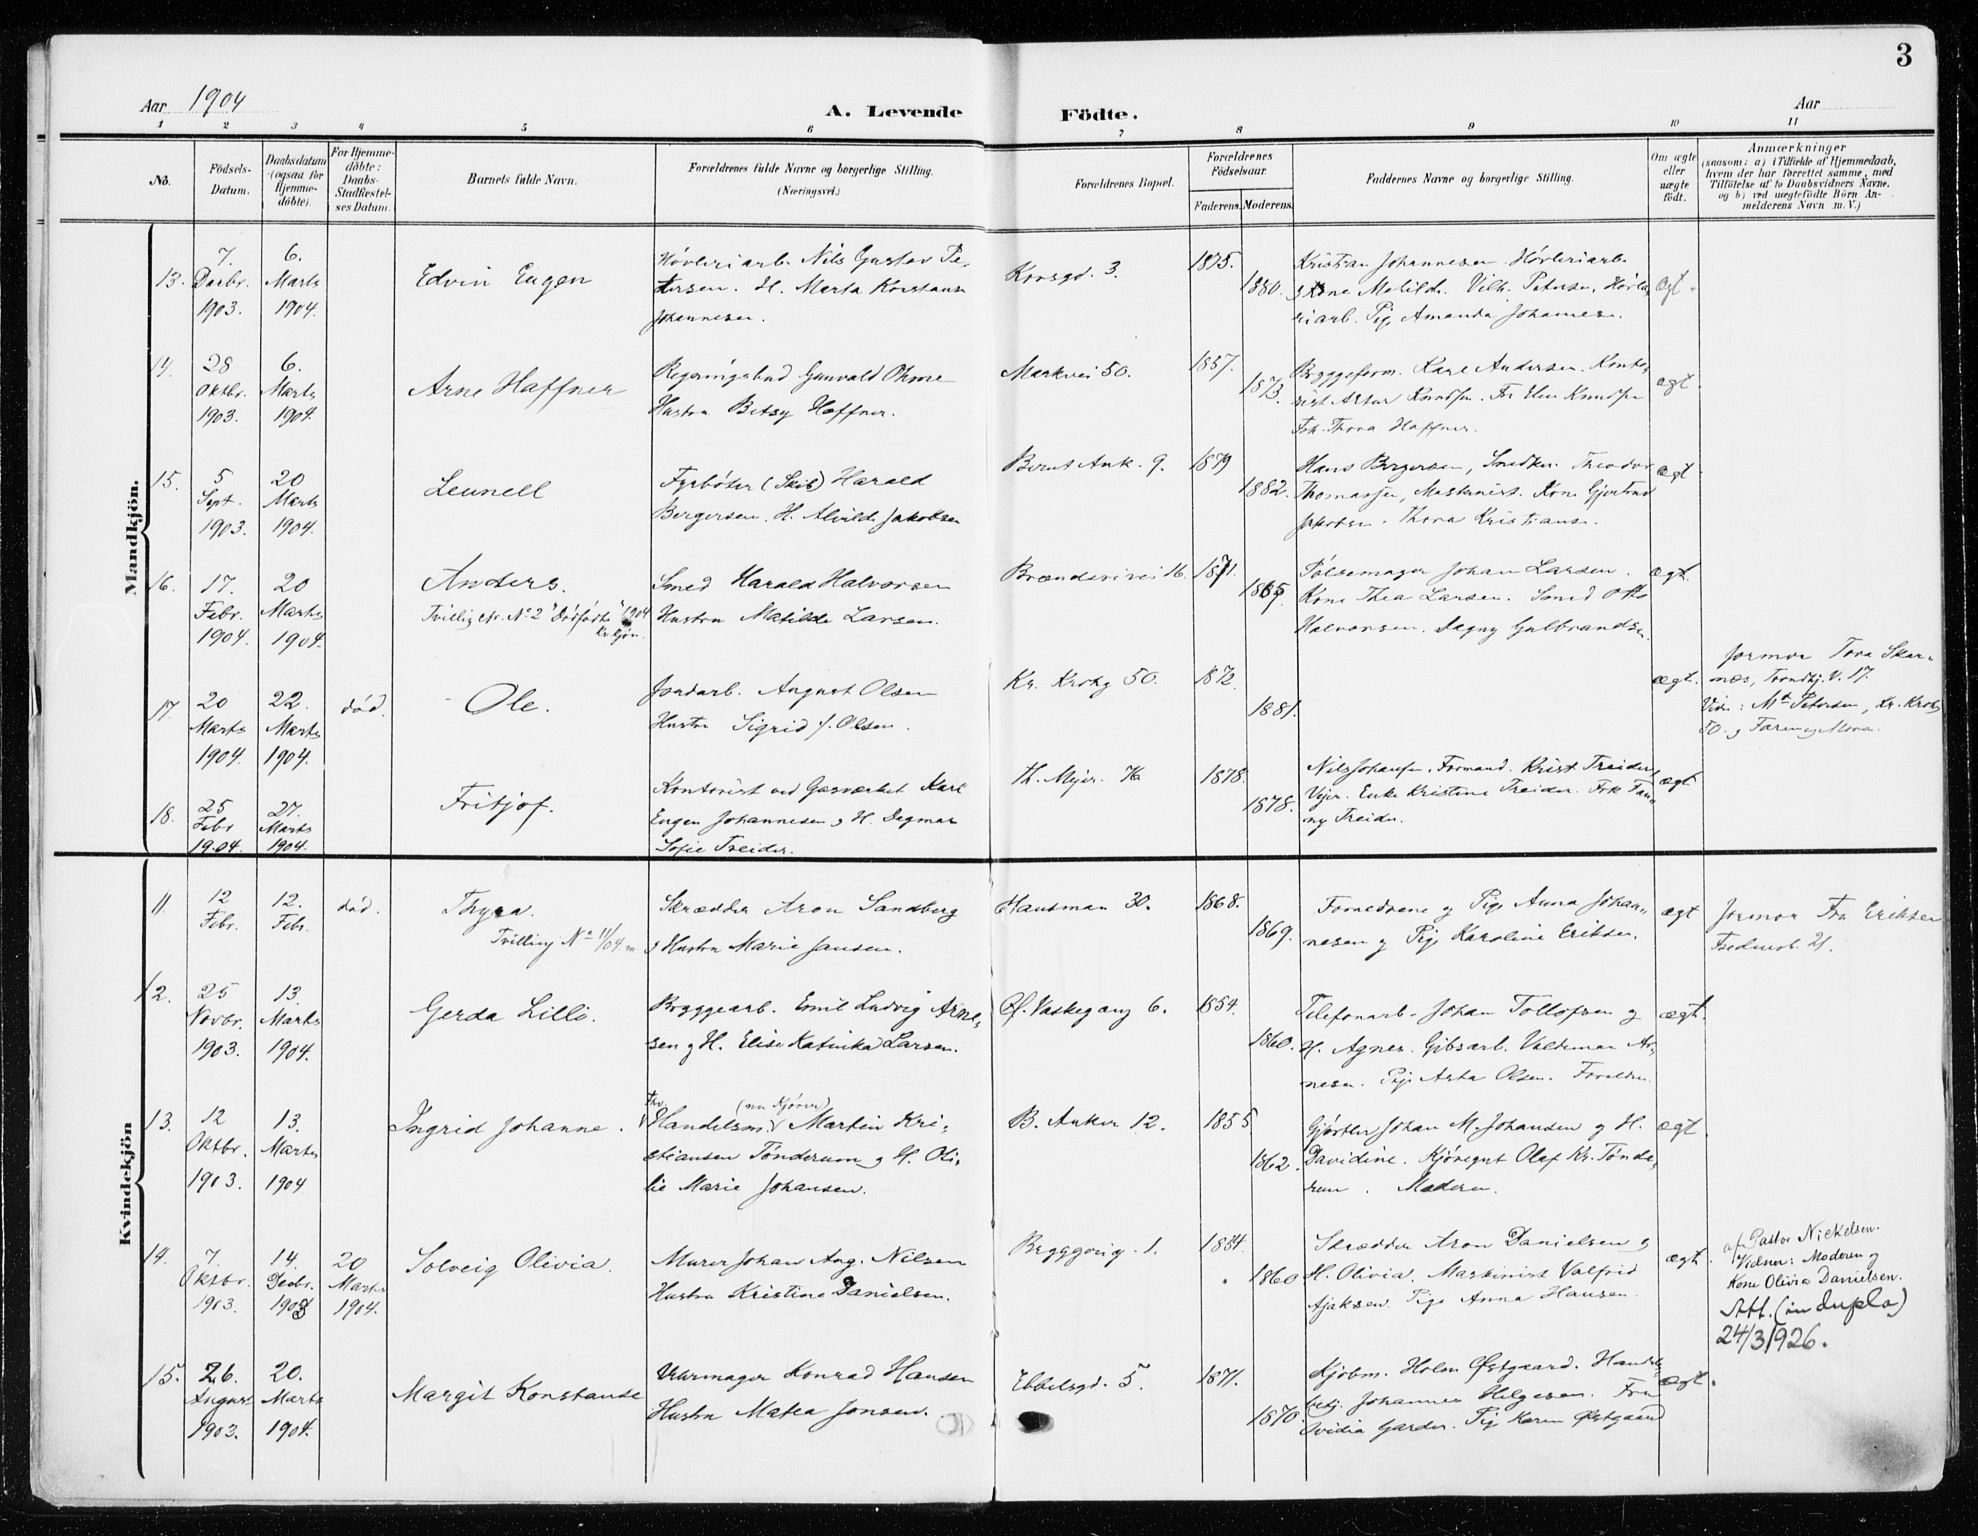 3
Aar 1904
A. Levende Födte.
Aar
1 2 3 4 5 6 7 8 9 10 11
No.
Födsels-
Datum.
Daabsdatum
(ogsaa for
Hjemme-
döbte).
For Hjemme-
döbte:
Daabs-
Stadfæstel-
ses Datum.
Barnets fulde Navn.
Forældrenes fulde Navne og borgerlige Stilling.
(Næringsvei.)
Forældrenes Bopæl.
Forældrenes
Födselsaar.
Faderens. Moderens.
Faddernes Navne og borgerlige Stilling.
Om ægte
eller
uægte
født.
Anmærkninger
(saasom: a) i Tilfælde af Hjemmedaab,
hvem der har forrettet samme, med
Tilföielse af to Daabsvidners Navne,
og b) ved uægtefödte Börn An-
melderens Navn m. V.)
Mandkjön.
13.
7.
Decbr.
1903.
6.
Marts
1904.
Edvin Eugen
Høvleriarb. Nils Gustav Pe-
tersen. H. Marta Konstanse
Johannesen.
Korsgd. 3.
1875.
1880.
Kristian Johannesen Høvleriarb.
Kone Matilde. Vilh. Petersen, Høvle-
riarb. Pige Amanda Johannesen
Ægt.
14.
28
Oktbr.
1903.
6.
Marts
1904.
Arne Haffner
Regjeringsbud Gunvald Ohme
Hustru Betsy Haffner.
Markvei 50.
1857.
1873.
Byggeform. Karl Andersen. Konto-
rist Artur Knudsen. Fr. Knudsen
Frk. Thora Haffner.
ægt.
15.
5
Sept.
1903.
20
Marts
1904.
Leunell
Fyrbøter (Skib) Harald
Bergersen. H. Alvilde Jakobsen
Bernt Ank. 9.
1879
1882.
Hans Bergersen, Snedker. Theodor
Thomassen, Maskinist. Kone Gjertrud
Jakobsen. Thora Kristiansen.
ægt.
16.
17.
Febr.
1904.
20
Marts
1904.
Anders.
Tvilling Nr. No 2 "Dødfødte" 1904
Kv.kjøn.
Smed Harald Halvorsen
Hustru Matilde Larsen.
16.
1871.
Pølsemager Johan Larsen.
Kone Thea Larsen. Smed Otto
Halvorsen. Dagny Gulbrandsen.
ægt.
17.
20
Marts
1904.
22.
Marts
1904.
død.
Ole.
Jordarb. August Olsen
Hustru Sigrid f. Olsen.
Kr. Krohg 50.
1872.
1881.
ægt.
Jormor Tora Skar-
næs, Trondhj. V. 17.
Vidn: Petersen, Kr. Krohg
50. og Faren og Moren.
18.
25
Febr
1904.
27.
Marts
1904.
Fritjof.
Kontorist ved Gasværket Karl
Eugen Johannesen og H. Dagmar
Sofie Treider.
Th. Mejer. 76
1878.
1878.
Nils Johansen, Formand. Krist. Treider
Vejer. Enke Kristine Treider. Frk Fan-
ny Treider.
ægt
Kvindekjön
11.
12
Febr.
12.
Febr.
død.
Thyra.
Tvilling No 11/04 m.
Skrædder Aron Sandberg
og Hustru Marie Jansen.
Hausman 30.
1868.
1869.
Forældrene og Pige Anna Johan-
nesen og Pige Karoline Eriksen.
ægt
Jormor Fru Eriksen
Fredensb. 21.
12.
25
Novbr.
1903.
13.
Marts
1904.
Gerda Lilli.
Bryggearb. Emil Ludvig Arne-
sen og H. Elise Katinka Larsen.
Ø. Vaskegang 6.
1854.
1860.
Telefonarb. Johan Tollofsen og
H. Agnes. Gibsarb. Valdemar Ar-
nesen. Pige Asta Olsen. Forældrene
ægt.
13.
12
Oktbr.
1903.
13.
Marts
1904
Ingrid Johanne.
fhv.
(nu Kjører)
Handelsm. Martin Kri-
stiansen Tønderum og H. Oli-
lie Marie Johansen.
B. Anker 12.
1855.
1862.
Gjørtler Johan M. Johansen og H.
Davidine. Kjøregut Olaf Kr. Tønde-
rum. Moderen.
ægt.
14.
7.
Oktbr.
1903.
14.
Decbr.
1903
20
Marts
1904.
Solveig Olivia.
Murer Johan Aug. Nilsen
Hustru Kristine Danielsen.
1.
1860
Skrædder Aron Danielsen og
H. Olivia. Maskinist Valfrid
Ajaksen. Pige Anna Hansen.
ægt.
af Pastor Nickelsen.
Vidner: Moderen og
Kone Olivia Danielsen.
Att. (in duplo)
24/3 1926.
15.
26.
August
1903.
20.
Marts
1904.
Margit Konstanse
Urmager Konrad Hansen
Hustru Matea Jonsen.
Ebbelsgd. 5.
1871.
1870.
Kjøbm. Østgaard. Handels-
betj. Johannes Helgesen. Fru
Garder. Pige Karen Østgaard
ægt.